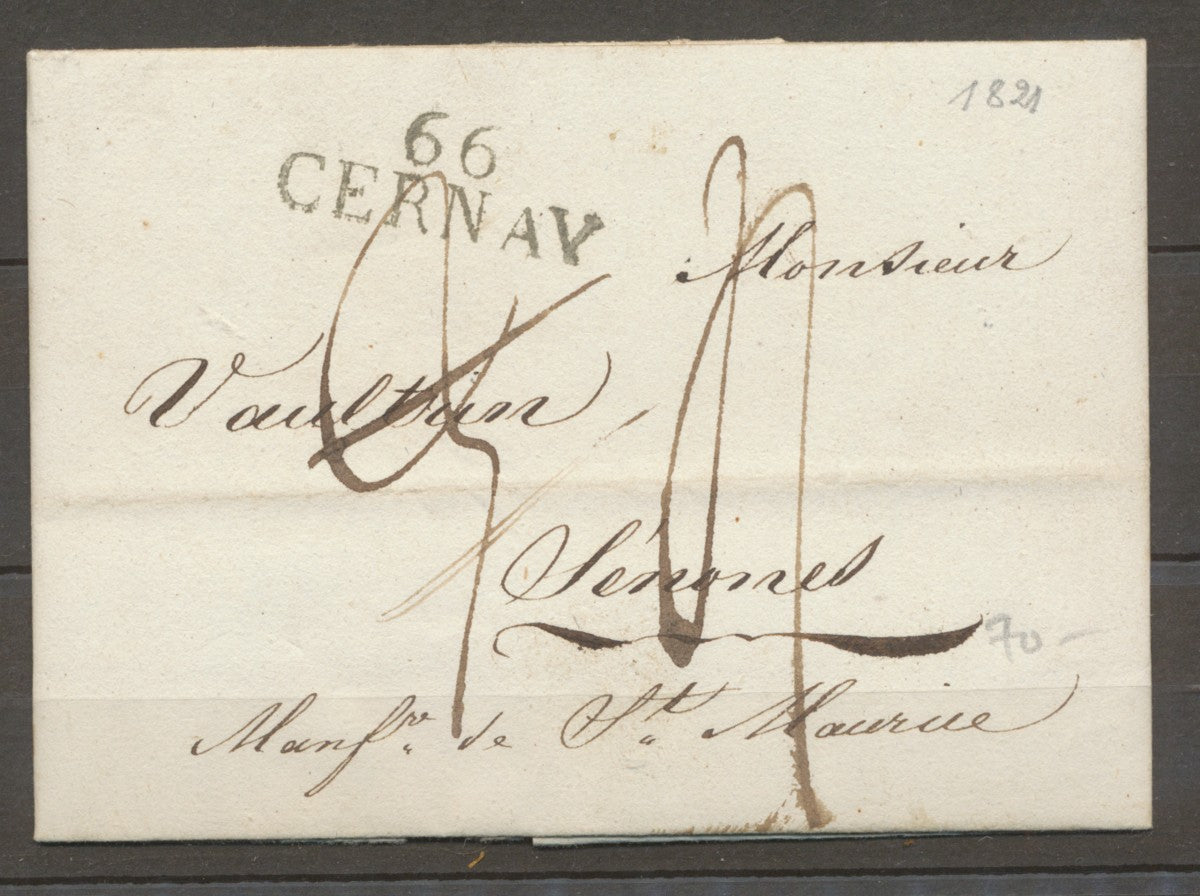 1821
66
CERNAY
Monsieur
Vaultrin
Sénones
70 -
Manf.re de St. Maurice